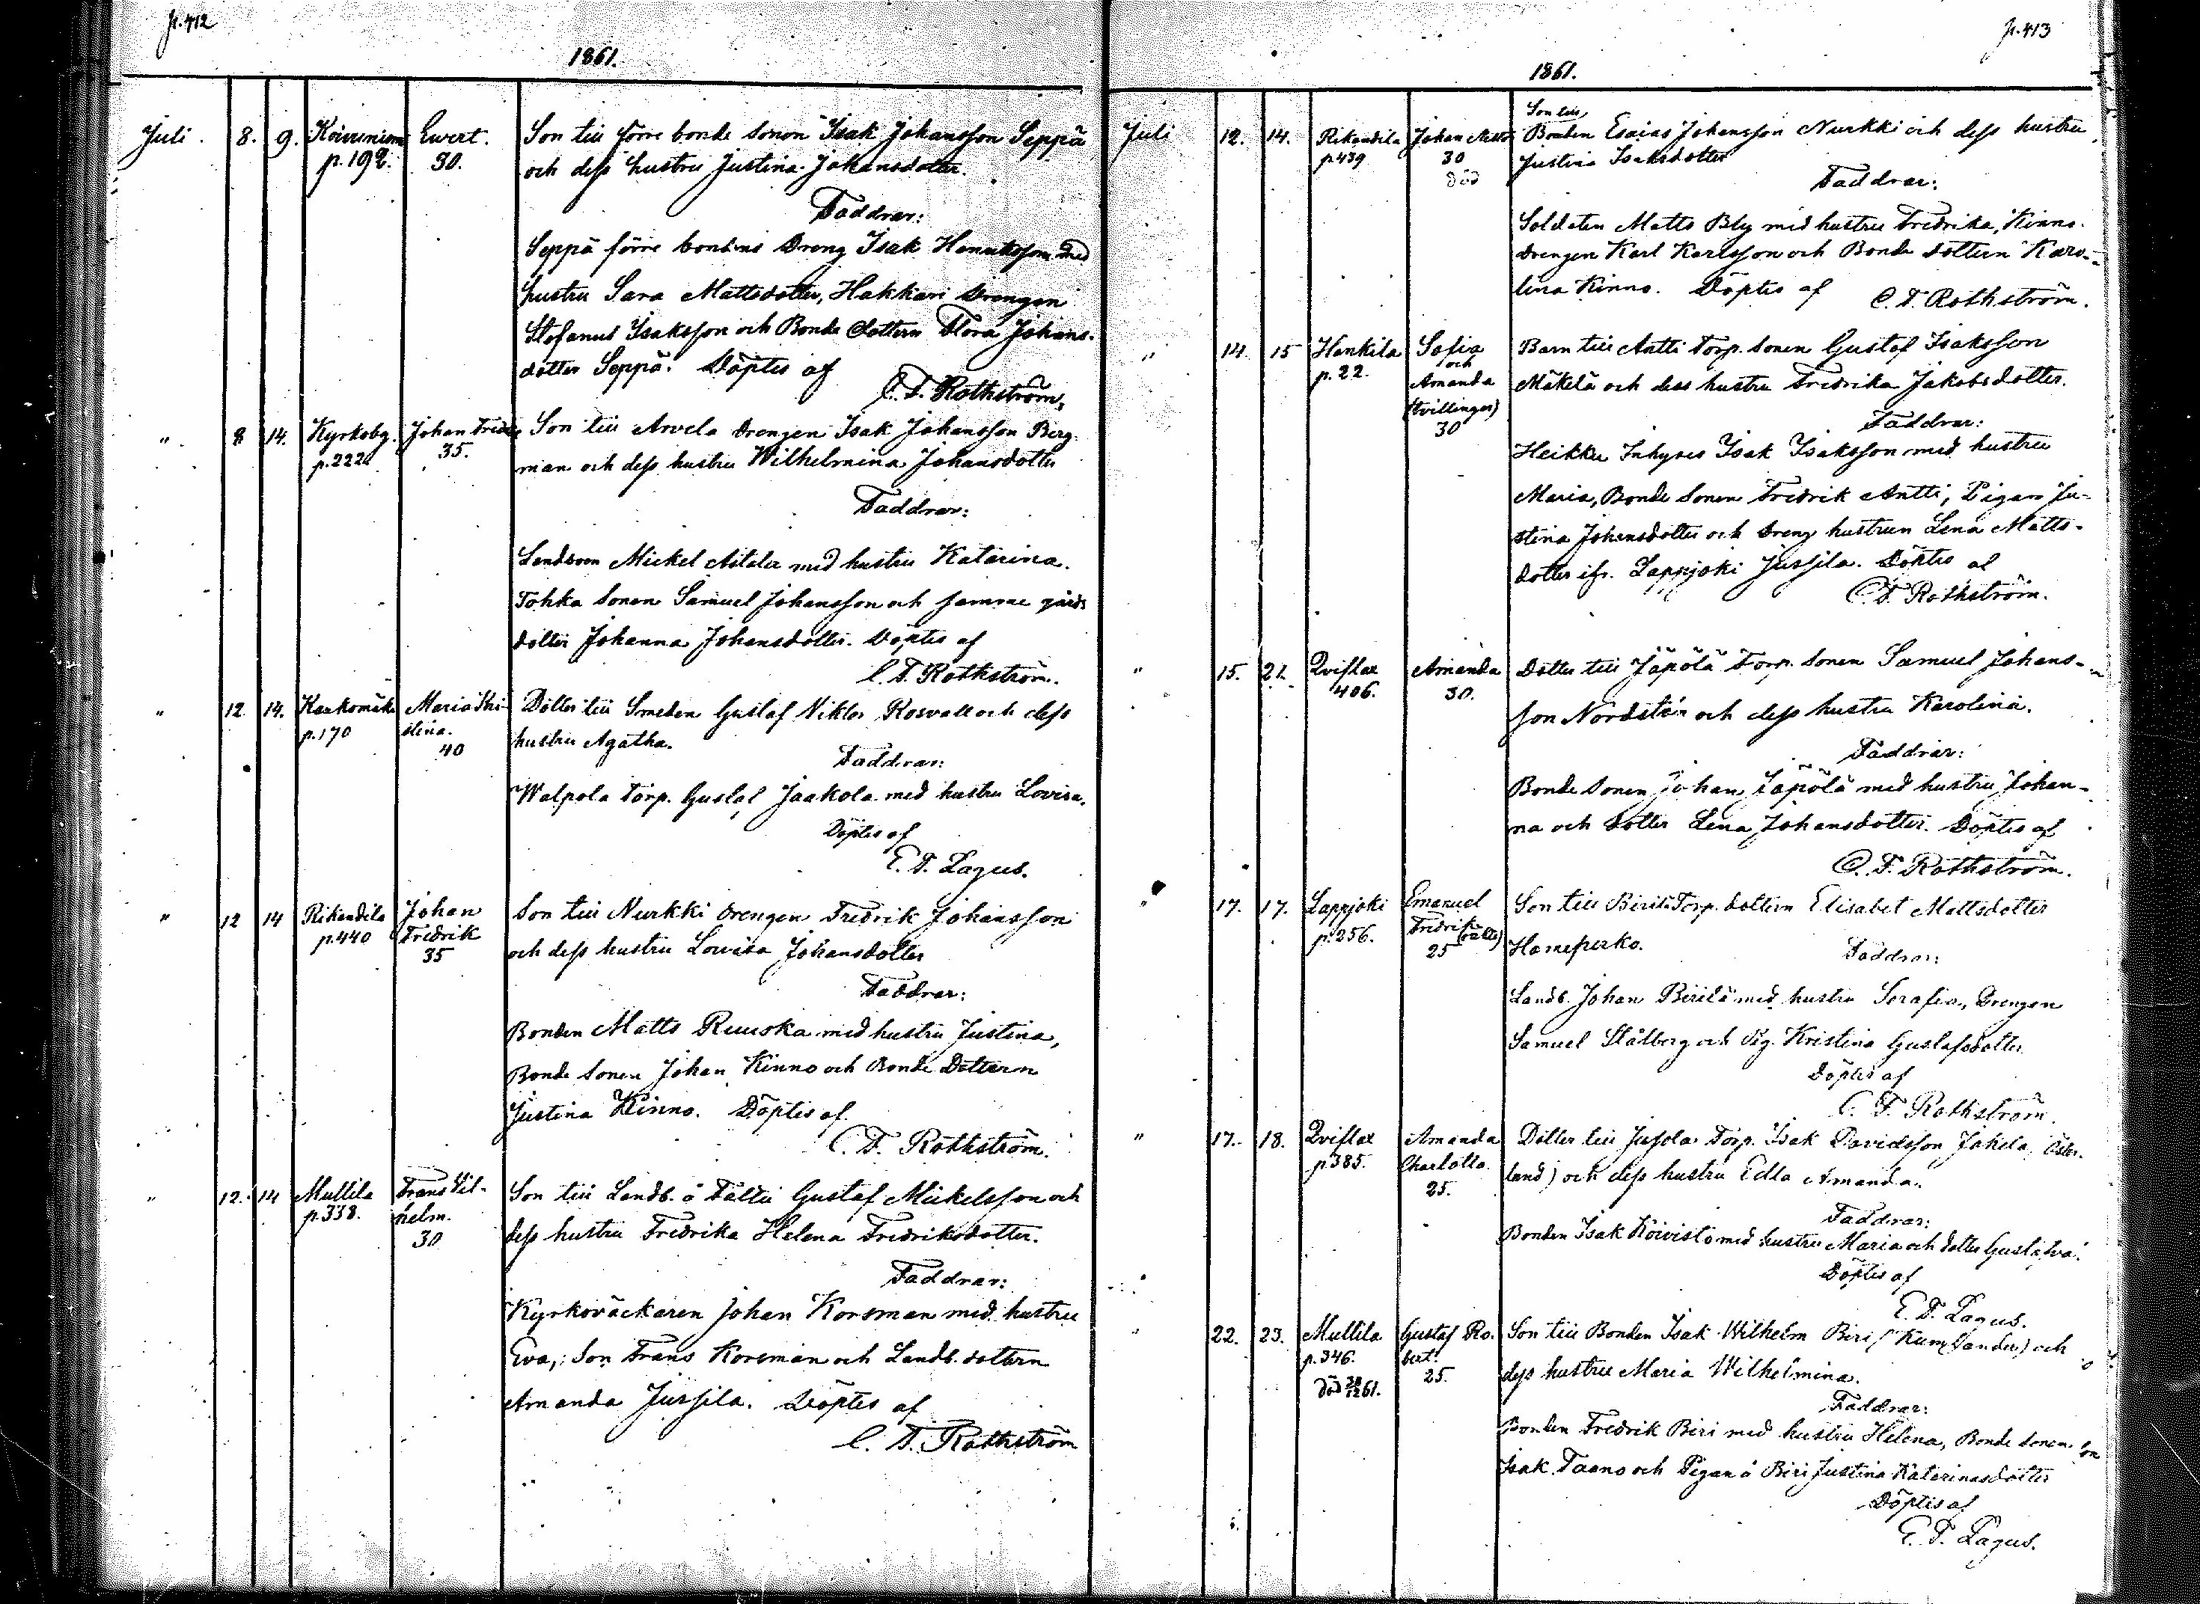 p. 412
1861.
Juli. 8. 9. Koivuniemi Ewert. Son till förre bonde sonen Isak Johansson Seppä
p. 192. 30. och dess hustru Justina Johansdotter.
Faddrar:
Seppä förre bondens Dreng Isak Henriksson med
hustru Sara Mattsdotter, Hakkari Drengen
Stefanus Isaksson och Bonde dottern Flora Johans-
dotter Seppä. Döptes af
C. F. Rothström.
" 8 14. Kyrkobg. Johan Son till Arvela Drengen Isak Johansson Berg-
p. 222 35. man och dess hustru Wilhelmina Johansdotter
Faddrar:
Landbon Mickel Aitala med hustru Katarina.
Tohka Sonen Samuel Johansson och samme gårds
dotter Johanna Johansdotter. Döptes af
C. F. Rothström.
" 12 14. Kaukomäki Maria Kri- Dotter till Smeden Gustaf Niklas Rosvall och dess
p. 170 stina. hustru Agatha.
40 Faddrar:
Walpola torp. Gustaf Jaakola med hustru Lovisa.
Döptes af
E. F. Lagus.
" 12 14 Rikandila Johan Son till Nurkki Drengen Fredrik Johansson
p. 440 Fredrik och dess hustru Lovisa Johansdotter
35 Faddrar:
Bonden Matts Ruuska med hustru Justina,
Bonde Sonen Johan Kinno och Bonde Dottern
Justina Kinno. Döptes af
C. F. Rothström.
" 12. 14 Mullila Frans Vil- Son till Landb. å Fälti Gustaf Mickelsson och
p. 338. helm. dess hustru Fredrika Helena Fredriksdotter.
30 Faddrar:
Kyrkoväckaren Johan Korsman med hustru
Eva, Son Frans Korsman och Landb. dottern
Amanda Jussila. Döptes af
C. F. Rothström
p. 413
1861.
Son till
Juli 12. 14. Rikandila Johan Bonden Esaias Johansson Nurkki och dess hustru
p 439 30 Justina Isaksdotter
död Faddrar:
Soldaten Matts Bly med hustru Fredrika, Kinno
Drengen Karl Karlsson och Bonde dottern Karo-
lina Kinno. Döptes af C. F. Rothström.
" 14. 15 Hankila Sofia Barn till Antti Torp. Sonen Gustaf Isaksson
p. 22. och
Amanda Mäkelä och dess hustru Fredrika Jakobsdotter.
(tvillingar) Faddrar:
30 Heikku Inhyses Isak Isaksson med hustru
Maria, Bonde Sonen Fredrik Antti, Pigan Ju-
stina Johansdotter och Dreng hustrun Lena Matts-
dotter ifr. Lappjoki Jussila. Döptes af
C. F. Rothström.
" 15. 21. Qviflax Amanda Dotter till Jäpölä Torp. Sonen Samuel Johans-
406. 30. son Nordstén och dess hustru Karolina.
Faddrar:
Bonde Sonen Johan Jäpölä med hustru Johan-
na och dotter Lena Johansdotter. Döptes af
C. F. Rothström.
" 17. 17. Lappjoki Emanuel Son till Birilä Torp. dottern Elisabet Mattsdotter
p. 256. Fredrik Haneperko. Faddrar:
25
Landb. Johan Birilä med hustru Serafia, Drengen
Samuel Stålberg och Pig. Kristina Gustafsdotter
Döptes af
C. F. Rothström.
" 17. 18. Qviflax Amanda Dotter till Torp. Isak Davidsson Jakola, Öster-
p 385. Charlotta. land) och dess hustru Edla Amanda.
25. Faddrar:
Bonden Isak Koivisto med hustru Maria och dotter Gustafva.
Döptes af
E. F. Lagus.
" 22. 23. Mullila Gustaf Ro- Son till Bonden Isak Wilhelm Biri och
p. 346. bert. dess hustru Maria Wilhelmina.
död 61. 25. Faddrar:
Bonden Fredrik Biri med hustru Helena, Bonde Sonen
Isak Taano och Pigan å Biri Justina Katerinasdotter
Döptes af
E. F. Lagus.